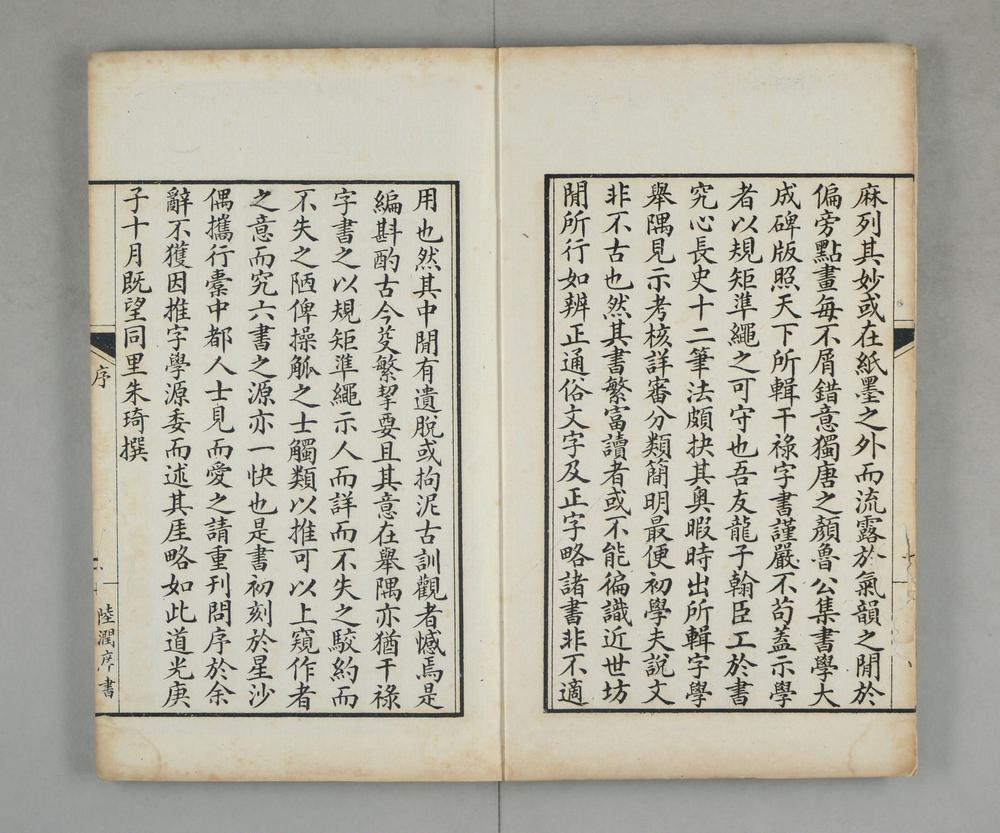 麻列其妙或在紙墨之外而流露於氣韻之閒於
偏旁點畫每不屑錯意獨唐之顏魯公集書學大
成碑版照天下所輯干祿字書謹嚴不苟蓋示學
者以規矩準繩之可守也吾友龍子翰臣工於書
究心長史十二筆法頗抉其奧暇時出所輯字學
舉隅見示考核詳審分類簡明最便初學夫說文
非不古也然其書繁富讀者或不能徧識近世坊
閒所行如辨正通俗文字及正字略諸書非不適
用也然其中閒有遺脫或拘泥古訓觀者憾焉是
編斟酌古今芟繁挈要且其意在舉隅亦猶干祿
字書之以規矩準繩示人而詳而不失之駮約而
不失之陋俾操觚之士觸類以推可以上窺作者
之意而究六書之源亦一快也是書初刻於星沙
偶攜行橐中都人士見而愛之請重刊問序於余
辭不獲因推字學源委而述其厓略如此道光庚
子十月既望同里朱琦撰
序
陸潤庠書